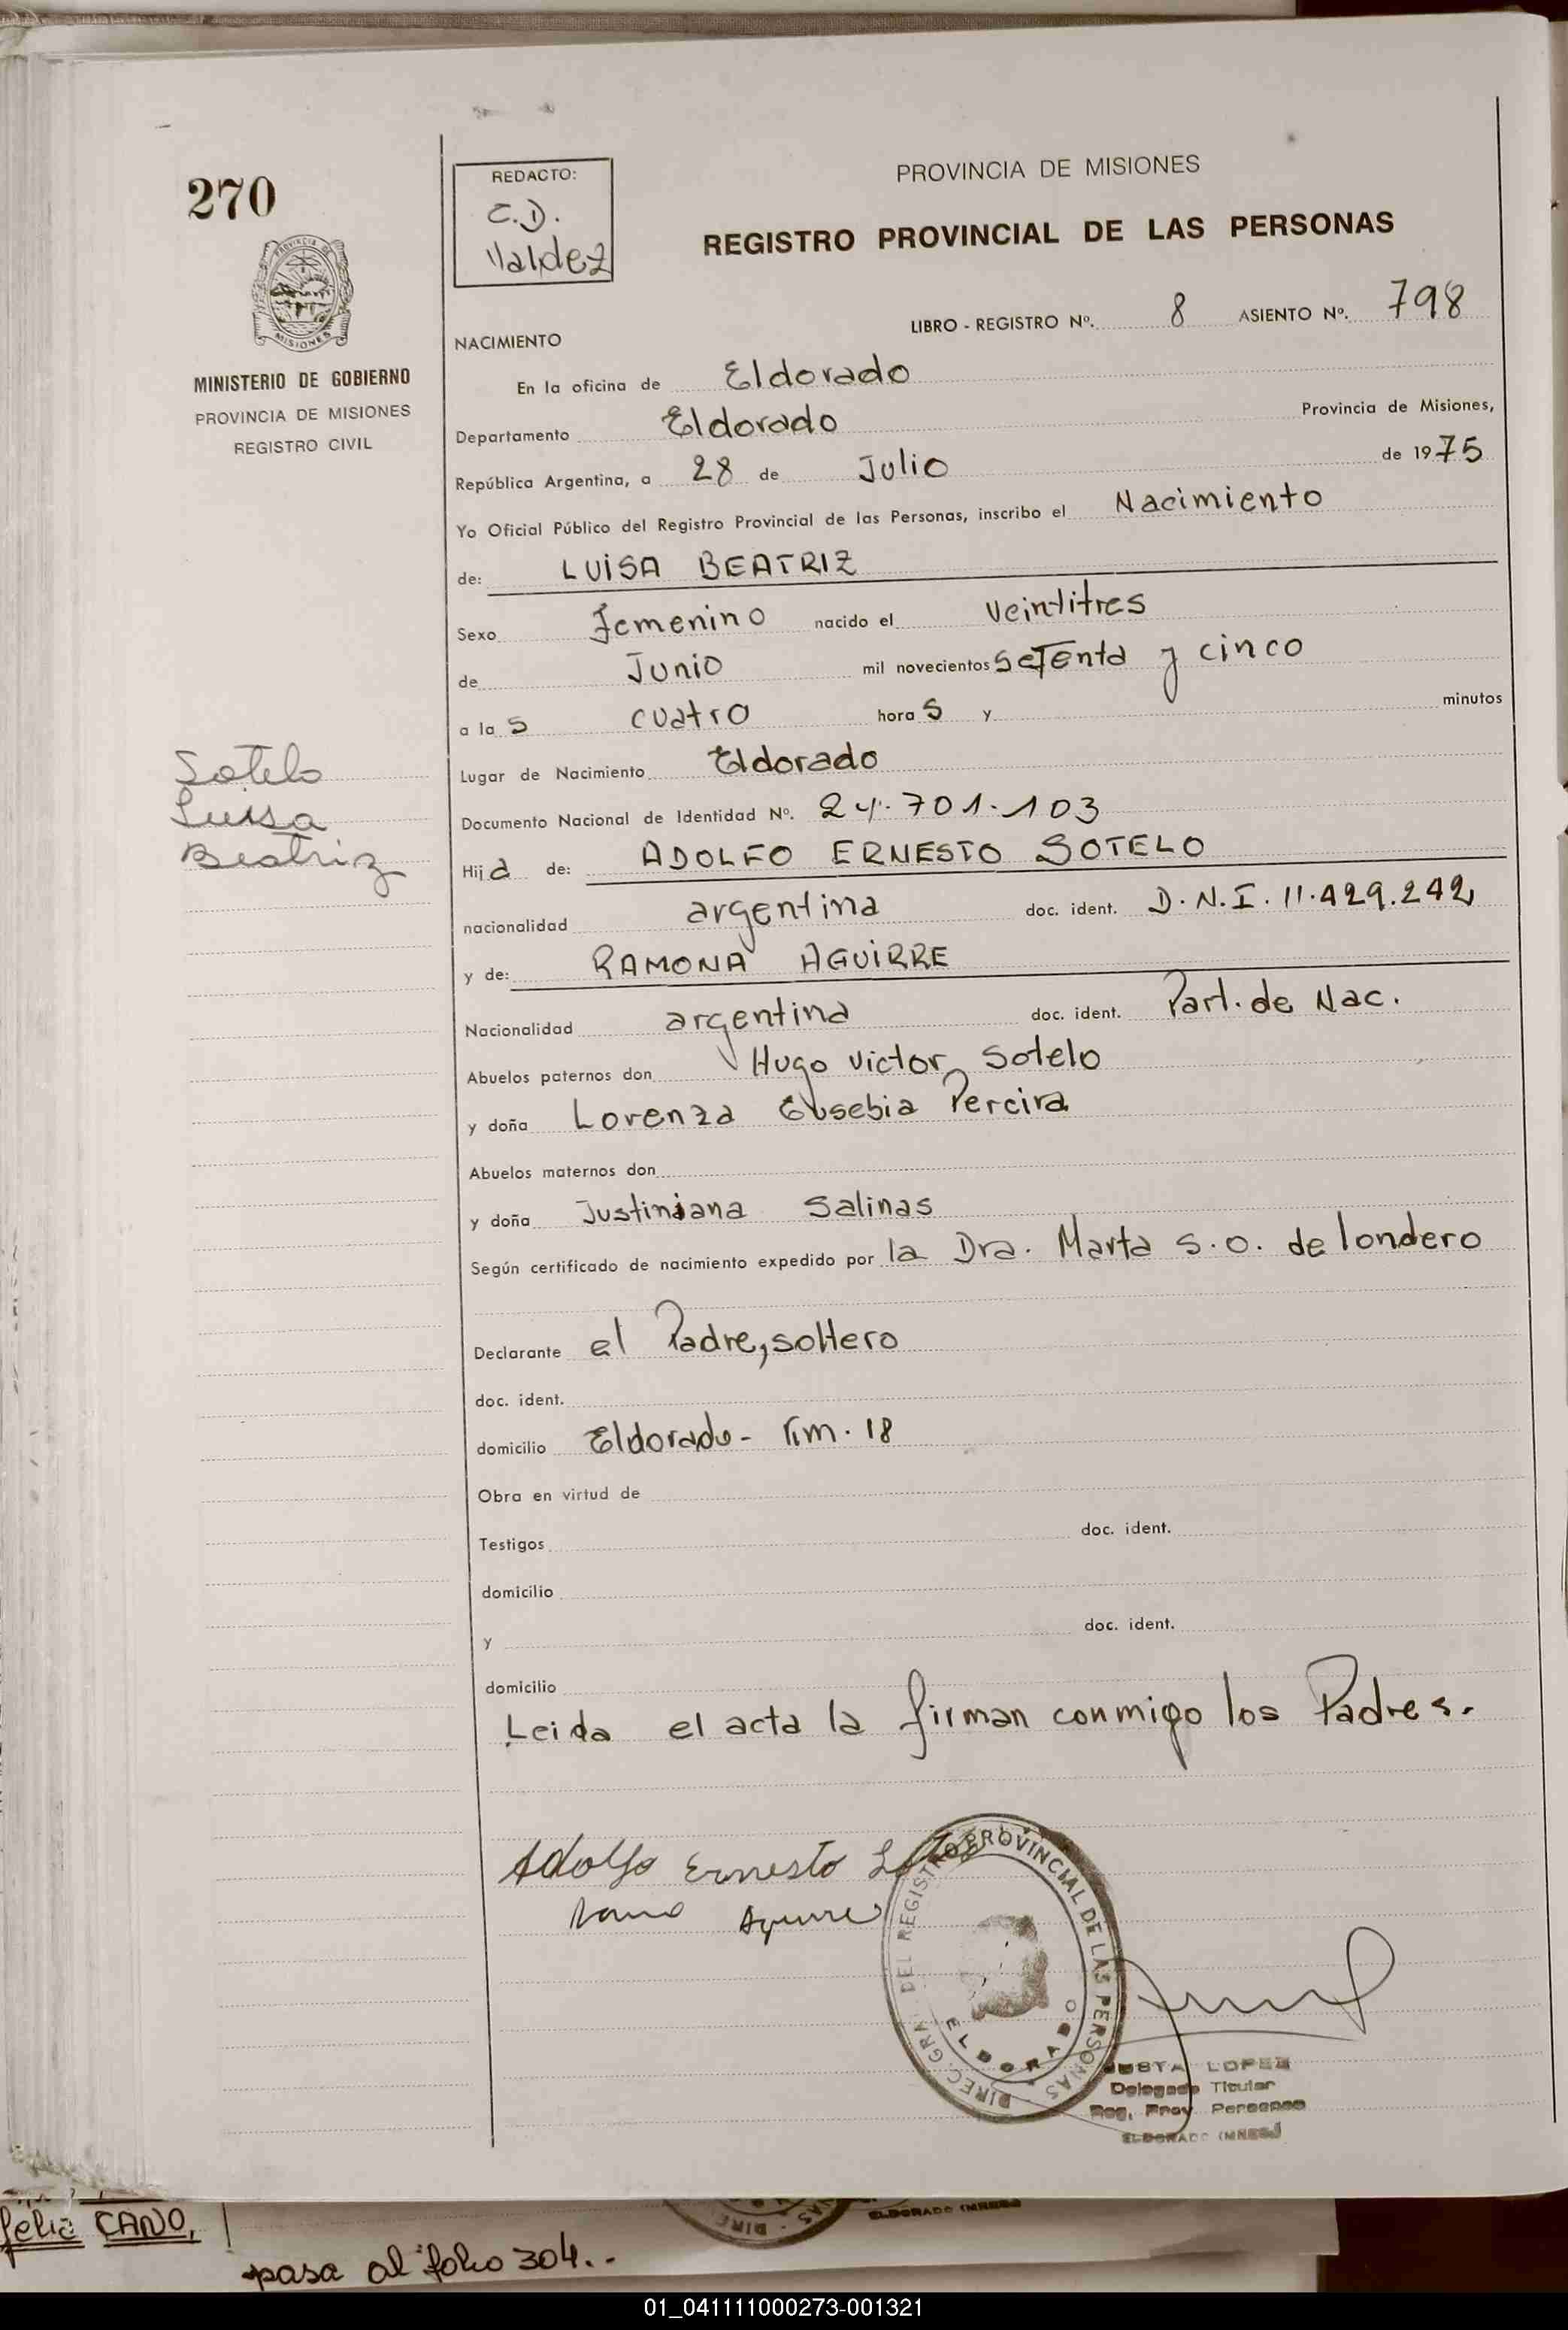 270
PROVINCIA DE MISIONES
MINISTERIO DE GOBIERNO
PROVINCIA DE MISIONES
REGISTRO CIVIL
REDACTO:
C.D.
Valdez
PROVINCIA DE MISIONES
REGISTRO PROVINCIAL DE LAS PERSONAS
LIBRO - REGISTRO Nº. 8 ASIENTO Nº. 798
NACIMIENTO
En la oficina de Eldorado
Departamento Eldorado Provincia de Misiones,
República Argentina, a 28 de Julio de 1975
Yo Oficial Público del Registro Provincial de las Personas, inscribo el Nacimiento
de: LUISA BEATRIZ
Sexo Femenino nacido el veintitres
de Junio mil novecientos setenta y cinco
a las cuatro horas y minutos
Sotelo
Luisa
Beatriz
Lugar de Nacimiento Eldorado
Documento Nacional de Identidad Nº. 24.701.103
Hija de: ADOLFO ERNESTO SOTELO
nacionalidad argentina doc. ident. D.N.I. 11.429.242
y de: RAMONA AGUIRRE
Nacionalidad argentina doc. ident. Part. de Nac.
Abuelos paternos don Hugo Victor Sotelo
y doña Lorenza Eusebia Pereira
Abuelos maternos don
y doña Justiniana Salinas
Según certificado de nacimiento expedido por la Dra. Marta S.O. de londero
Declarante el Padre, soltero
doc. ident.
domicilio Eldorado - Km. 18
Obra en virtud de
Testigos doc. ident.
domicilio
y doc. ident.
domicilio
Leida el acta la firman conmigo los Padres.
Adolfo Ernesto
Aguirre
DIREC. GRAL. DEL REGISTRO PROVINCIAL DE LAS PERSONAS
ELDORADO
JUSTA LOPEZ
Delegado Titular
Reg. Prov. Personas
ELDORADO (MNES)
CANO,
ELDORADO (MNES)
pasa al folio 304..
01_041111000273-001321